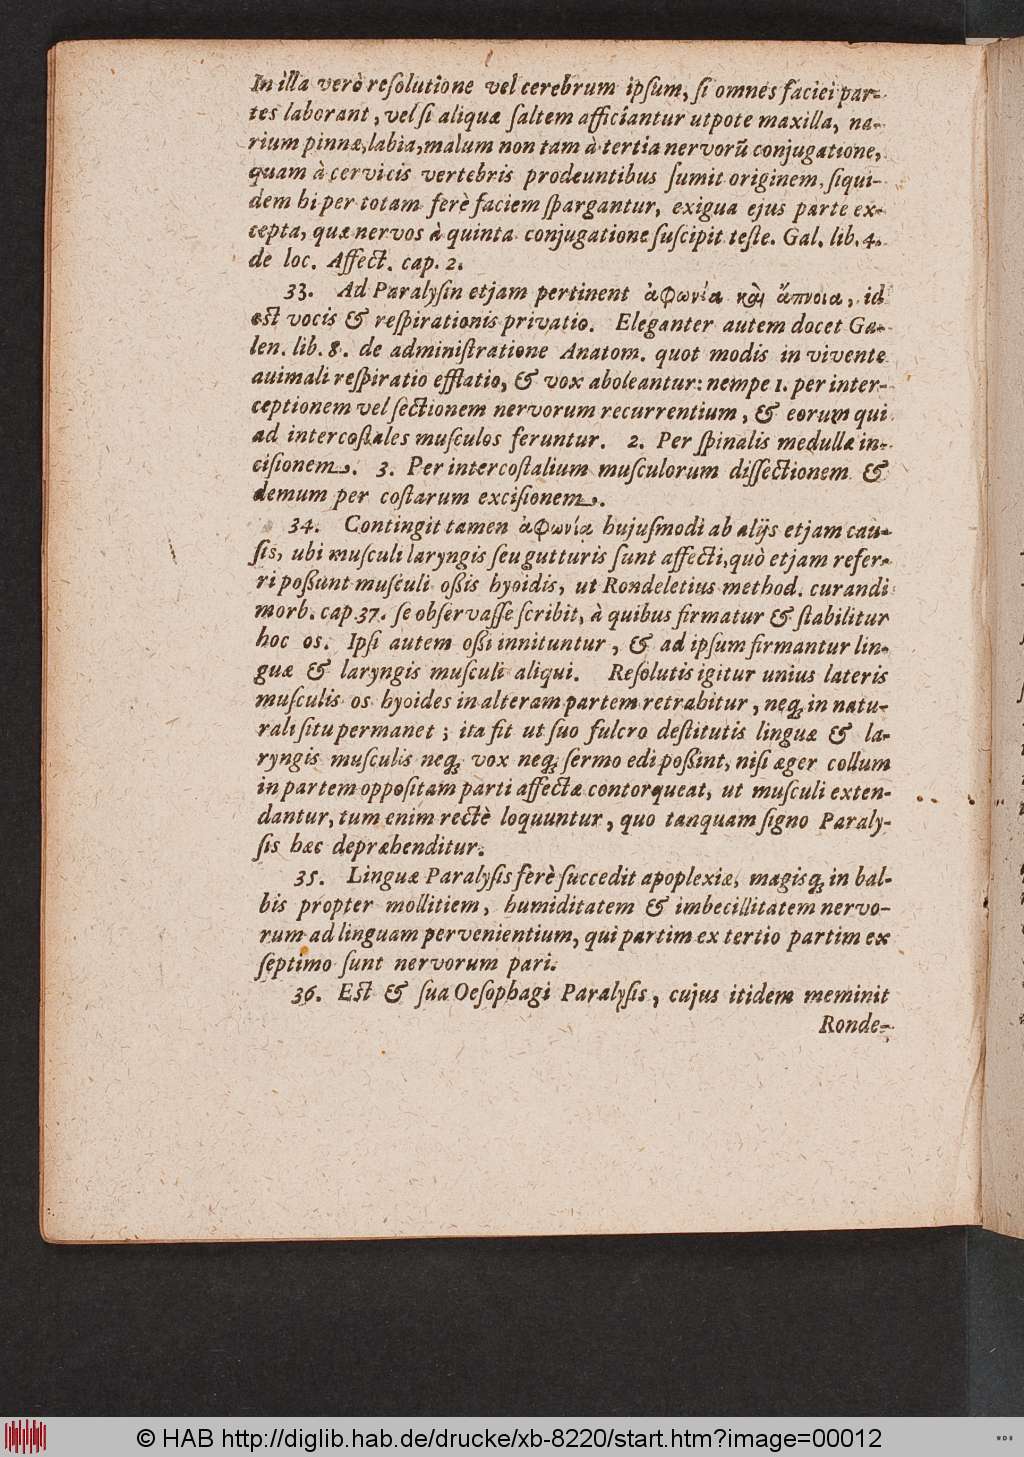 In illa verò reſolutione vel cerebrum ipſum, ſi omnes faciei par-
tes laborant, vel ſi aliquæ ſaltem afficiantur utpote maxilla, na-
rium pinnæ, labia, malum non tam à tertia nervorū conjugatione,
quam à cervicis vertebris prodeuntibus ſumit originem, ſiqui-
dem hi per totam ferè faciem ſpargantur, exigua ejus parte ex-
cepta, quæ nervos à quinta conjugatione ſuſcipit teſte. Gal. lib. 4.
de loc. Affect. cap. 2.
33. Ad Paralyſin etjam pertinent ἀφωνία καὶ ἄπνοια, id
est vocis & reſpirationis privatio. Eleganter autem docet Ga-
len. lib. 8. de adminiſtratione Anatom. quot modis in vivente
auimali reſpiratio efflatio, & vox aboleantur: nempe 1. per inter-
ceptionem vel ſectionem nervorum recurrentium, & eorum qui
ad intercoſtales muſculos feruntur. 2. Per ſpinalis medullæ in-
ciſionem. 3. Per intercoſtalium muſculorum diſſectionem &
demum per coſtarum exciſionem.
34. Contingit tamen ἀφωνία hujuſmodi ab alijs etjam cau-
ſis, ubi muſculi laryngis ſeu gutturis ſunt affecti, quò etjam refer-
ri poßunt muſculi oßis hyoidis, ut Rondeletius method. curandi
morb. cap. 37. ſe obſervaſſe ſcribit, à quibus firmatur & ſtabilitur
hoc os. Ipſi autem oßi innituntur, & ad ipſum firmantur lin-
guæ & laryngis muſculi aliqui. Reſolutis igitur unius lateris
muſculis os hyoides in alteram partem retrahitur, neq; in natu-
rali ſitu permanet; ita fit ut ſuo fulcro deſtitutis linguæ & la-
ryngis muſculis neq; vox neq; ſermo edi poßint, niſi æger collum
in partem oppoſitam parti affectæ contorqueat, ut muſculi exten-
dantur, tum enim rectè loquuntur, quo tanquam ſigno Paraly-
ſis hæc depræhenditur.
35. Linguæ Paralyſis ferè ſuccedit apoplexiæ, magisq; in bal-
bis propter mollitiem, humiditatem & imbecillitatem nervo-
rum ad linguam pervenientium, qui partim ex tertio partim ex
ſeptimo ſunt nervorum pari.
36. Est & ſua Oeſophagi Paralyſis, cujus itidem meminit
Ronde-
© HAB http://diglib.hab.de/drucke/xb-8220/start.htm?image=00012